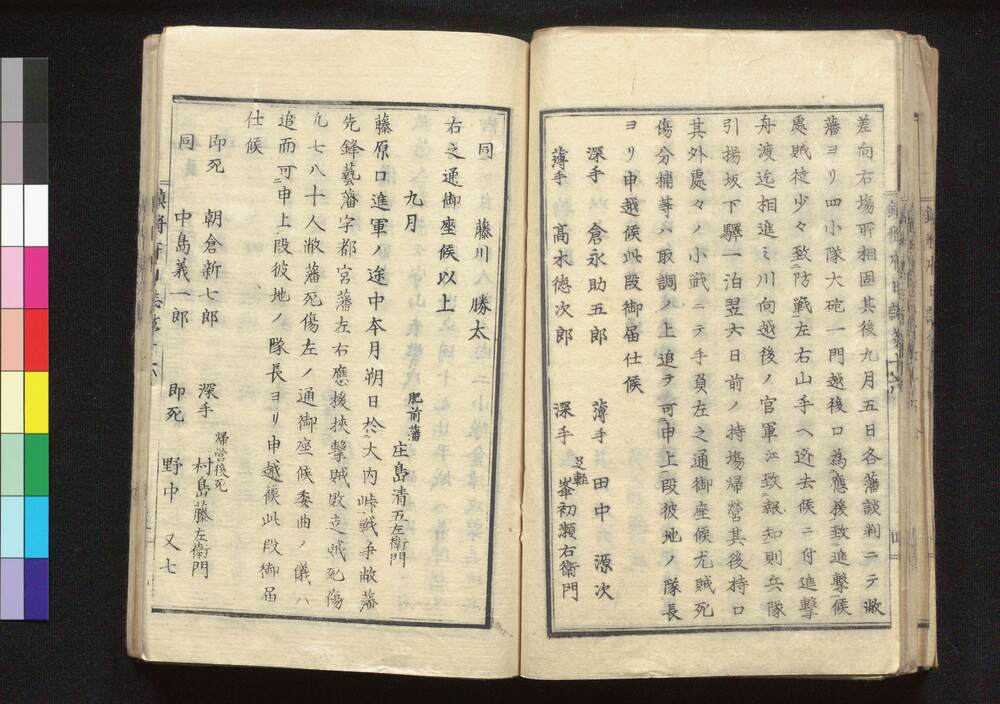 差向右場所相固其後九月五日各藩談判ニテ敝
藩ヨリ四小隊大砲一門越後口為應援致進撃候
處賊徒少々致防戦左右山手ヘ迯去候ニ付進撃
舟渡迄相進ミ川向越後ノ官軍江致報知則兵隊
引揚坂下驛一泊翌六日前ノ持場帰營其後持口
其外處々ノ小戦ニテ手負左之通御座候尤賊死
傷分捕等ハ取調ノ上追テ可申上段彼地ノ隊長
ヨリ申越候此段御届仕候
深手 倉永助五郎 薄手 田中源次
薄手 高木德次郎 深手 足軽 峯初瀬右衛門
同 藤川勝太
右之通御座候以上
九月 肥前藩 庄島清五左衛門
藤原口進軍ノ途中本月朔日於大内峠戦争敝藩
先鋒藝藩宇都宮藩左右應援挾撃賊敗走賊死傷
凡七八十人敝藩死傷左ノ通御座候委曲ノ儀ハ
追而可申上段彼地ノ隊長ヨリ申越候此段御届
仕候
即死 朝倉新七郎 深手 帰營後死 村島藤左衛門
同 中島義一郎 即死 野中又七